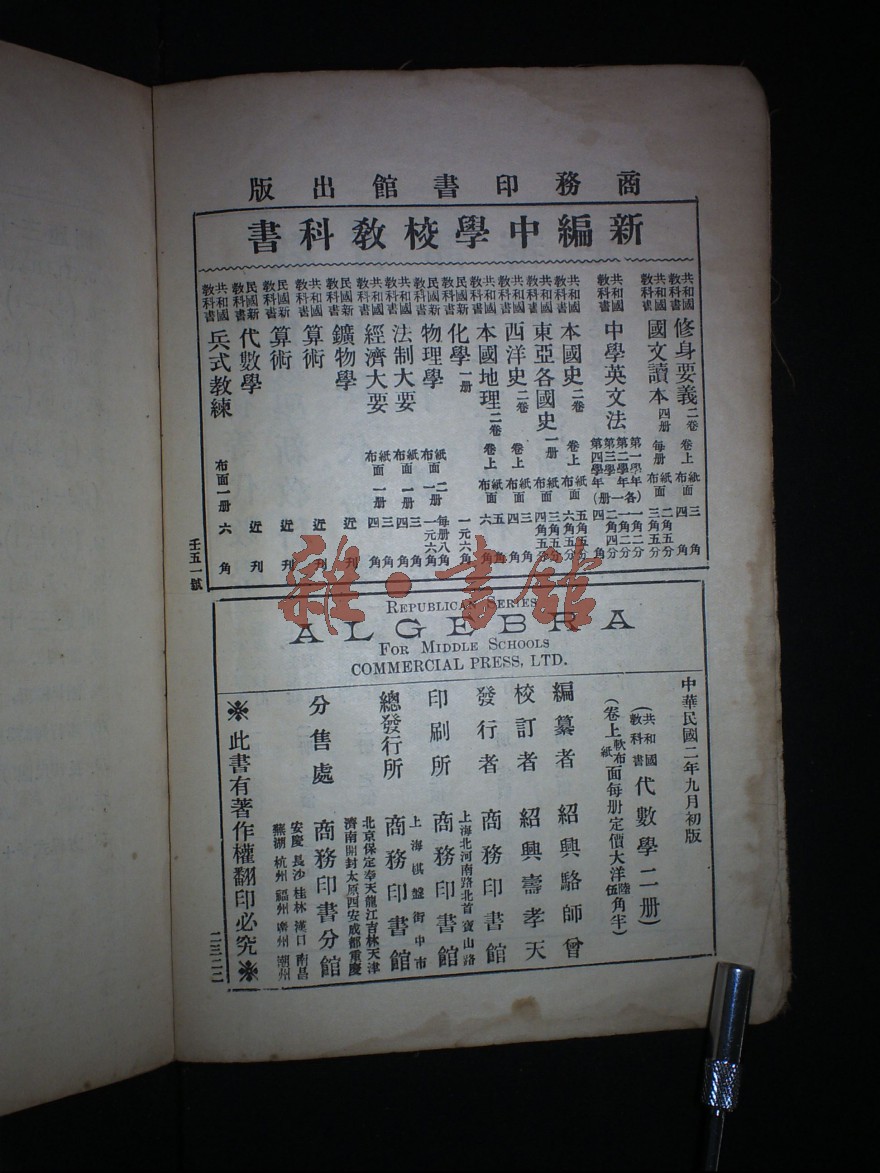 商務印書館出版
新編中學校教科書
共和國教科書 修身要義 二卷 卷上 紙面 三角 布面 四角
共和國教科書 國文讀本 四册 每册 紙面 二角五分 布面 三角五分
共和國教科書 中學英文法 第一學年 第二學年 第三學年 第四學年 (各一册)
共和國教科書 本國史 二卷 卷上 紙面 布面
共和國教科書 東亞各國史 一册 紙面 布面
共和國教科書 西洋史 二卷 卷上 紙面 三角 布面 四角
共和國教科書 本國地理 二卷 卷上 紙面 五角 布面 六角
民國新教科書 化學 一册 一元六角
民國新教科書 物理學 紙面 二册 每册八角 布面 一元六角
共和國教科書 法制大要 紙面 一册 三角 布面 四角
共和國教科書 經濟大要 紙面 一册 三角 布面 四角
民國新教科書 鑛物學 近刊
共和國教科書 算術 近刊
民國新教科書 算術 近刊
民國新教科書 代數學 近刊
共和國教科書 兵式教練 布面一册 六角
壬五一號
雜·書館
REPUBLICAN SERIES
ALGEBRA
FOR MIDDLE SCHOOLS
COMMERCIAL PRESS, LTD.
中華民國二年九月初版
(共和國教科書 代數學二册)
(卷上軟布紙面每册定價大洋陸伍角半)
編纂者 紹興駱師曾
校訂者 紹興壽孝天
發行者 商務印書館
上海北河南路北首寶山路
印刷所 商務印書館
上海棋盤街中市
總發行所 商務印書館
北京保定奉天龍江吉林天津
濟南開封太原西安成都重慶
分售處 商務印書分館
安慶 長沙 桂林 漢口 南昌
蕪湖 杭州 福州 廣州 潮州
※此書有著作權翻印必究※
二三二二